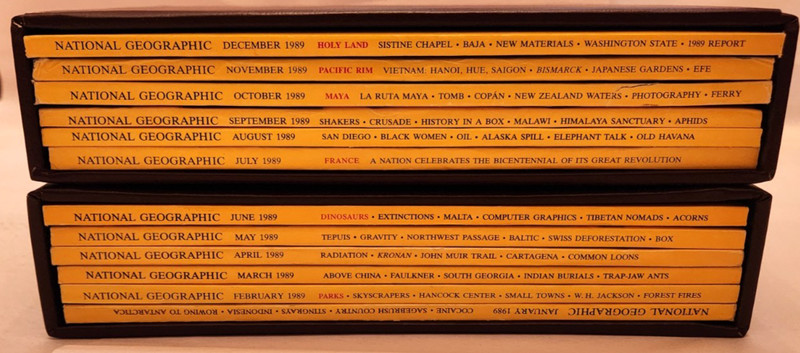 NATIONAL GEOGRAPHIC DECEMBER 1989 HOLY LAND SISTINE CHAPEL • BAJA • NEW MATERIALS • WASHINGTON STATE • 1989 REPORT
NATIONAL GEOGRAPHIC NOVEMBER 1989 PACIFIC RIM VIETNAM: HANOI, HUE, SAIGON • BISMARCK • JAPANESE GARDENS • EFE
NATIONAL GEOGRAPHIC OCTOBER 1989 MAYA LA RUTA MAYA • TOMB • COPÁN • NEW ZEALAND WATERS • PHOTOGRAPHY • FERRY
NATIONAL GEOGRAPHIC SEPTEMBER 1989 SHAKERS • CRUSADE • HISTORY IN A BOX • MALAWI • HIMALAYA SANCTUARY • APHIDS
NATIONAL GEOGRAPHIC AUGUST 1989 SAN DIEGO • BLACK WOMEN • OIL • ALASKA SPILL • ELEPHANT TALK • OLD HAVANA
NATIONAL GEOGRAPHIC JULY 1989 FRANCE A NATION CELEBRATES THE BICENTENNIAL OF ITS GREAT REVOLUTION
NATIONAL GEOGRAPHIC JUNE 1989 DINOSAURS • EXTINCTIONS • MALTA • COMPUTER GRAPHICS • TIBETAN NOMADS • ACORNS
NATIONAL GEOGRAPHIC MAY 1989 TEPUIS • GRAVITY • NORTHWEST PASSAGE • BALTIC • SWISS DEFORESTATION • BOX
NATIONAL GEOGRAPHIC APRIL 1989 RADIATION • KRONAN • JOHN MUIR TRAIL • CARTAGENA • COMMON LOONS
NATIONAL GEOGRAPHIC MARCH 1989 ABOVE CHINA • FAULKNER • SOUTH GEORGIA • INDIAN BURIALS • TRAP-JAW ANTS
NATIONAL GEOGRAPHIC FEBRUARY 1989 PARKS • SKYSCRAPERS • HANCOCK CENTER • SMALL TOWNS • W. H. JACKSON • FOREST FIRES
NATIONAL GEOGRAPHIC JANUARY 1989 COCAINE • SAGEBRUSH COUNTRY • STINGRAYS • INDONESIA • ROWING TO ANTARCTICA